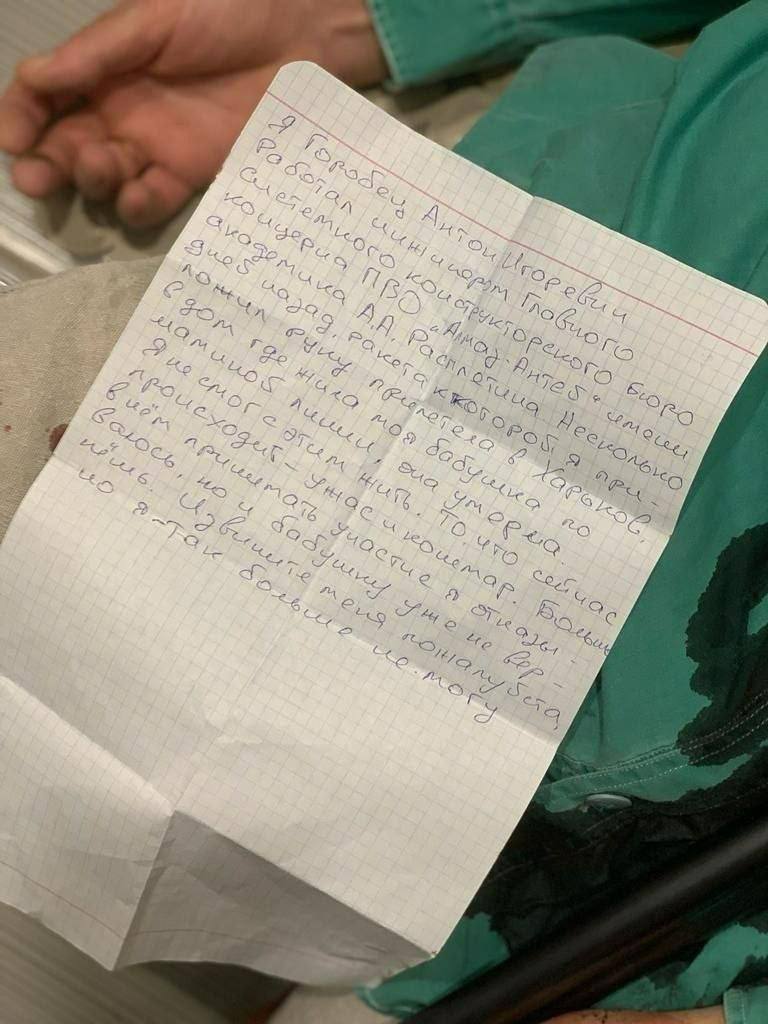 Я Горобец Антон Игоревич
Работал инжинером Главного
системного конструкторского бюро
концерна ПВО "Алмаз-Антей" имени
академика А.А. Расплетина Несколько
дней назад, ракета к которой я при-
ложил руку прилетела в Харьков.
в дом где жила моя бабушка по
маминой линии, она умерла.
Я не смог с этим жить. То, что сейчас
происходит - ужас и кошмар. Больше
в нём принимать участие я отказы-
ваюсь, но и бабушку уже не вер-
нёшь. Извините меня пожалуйста,
но я-так больше не могу